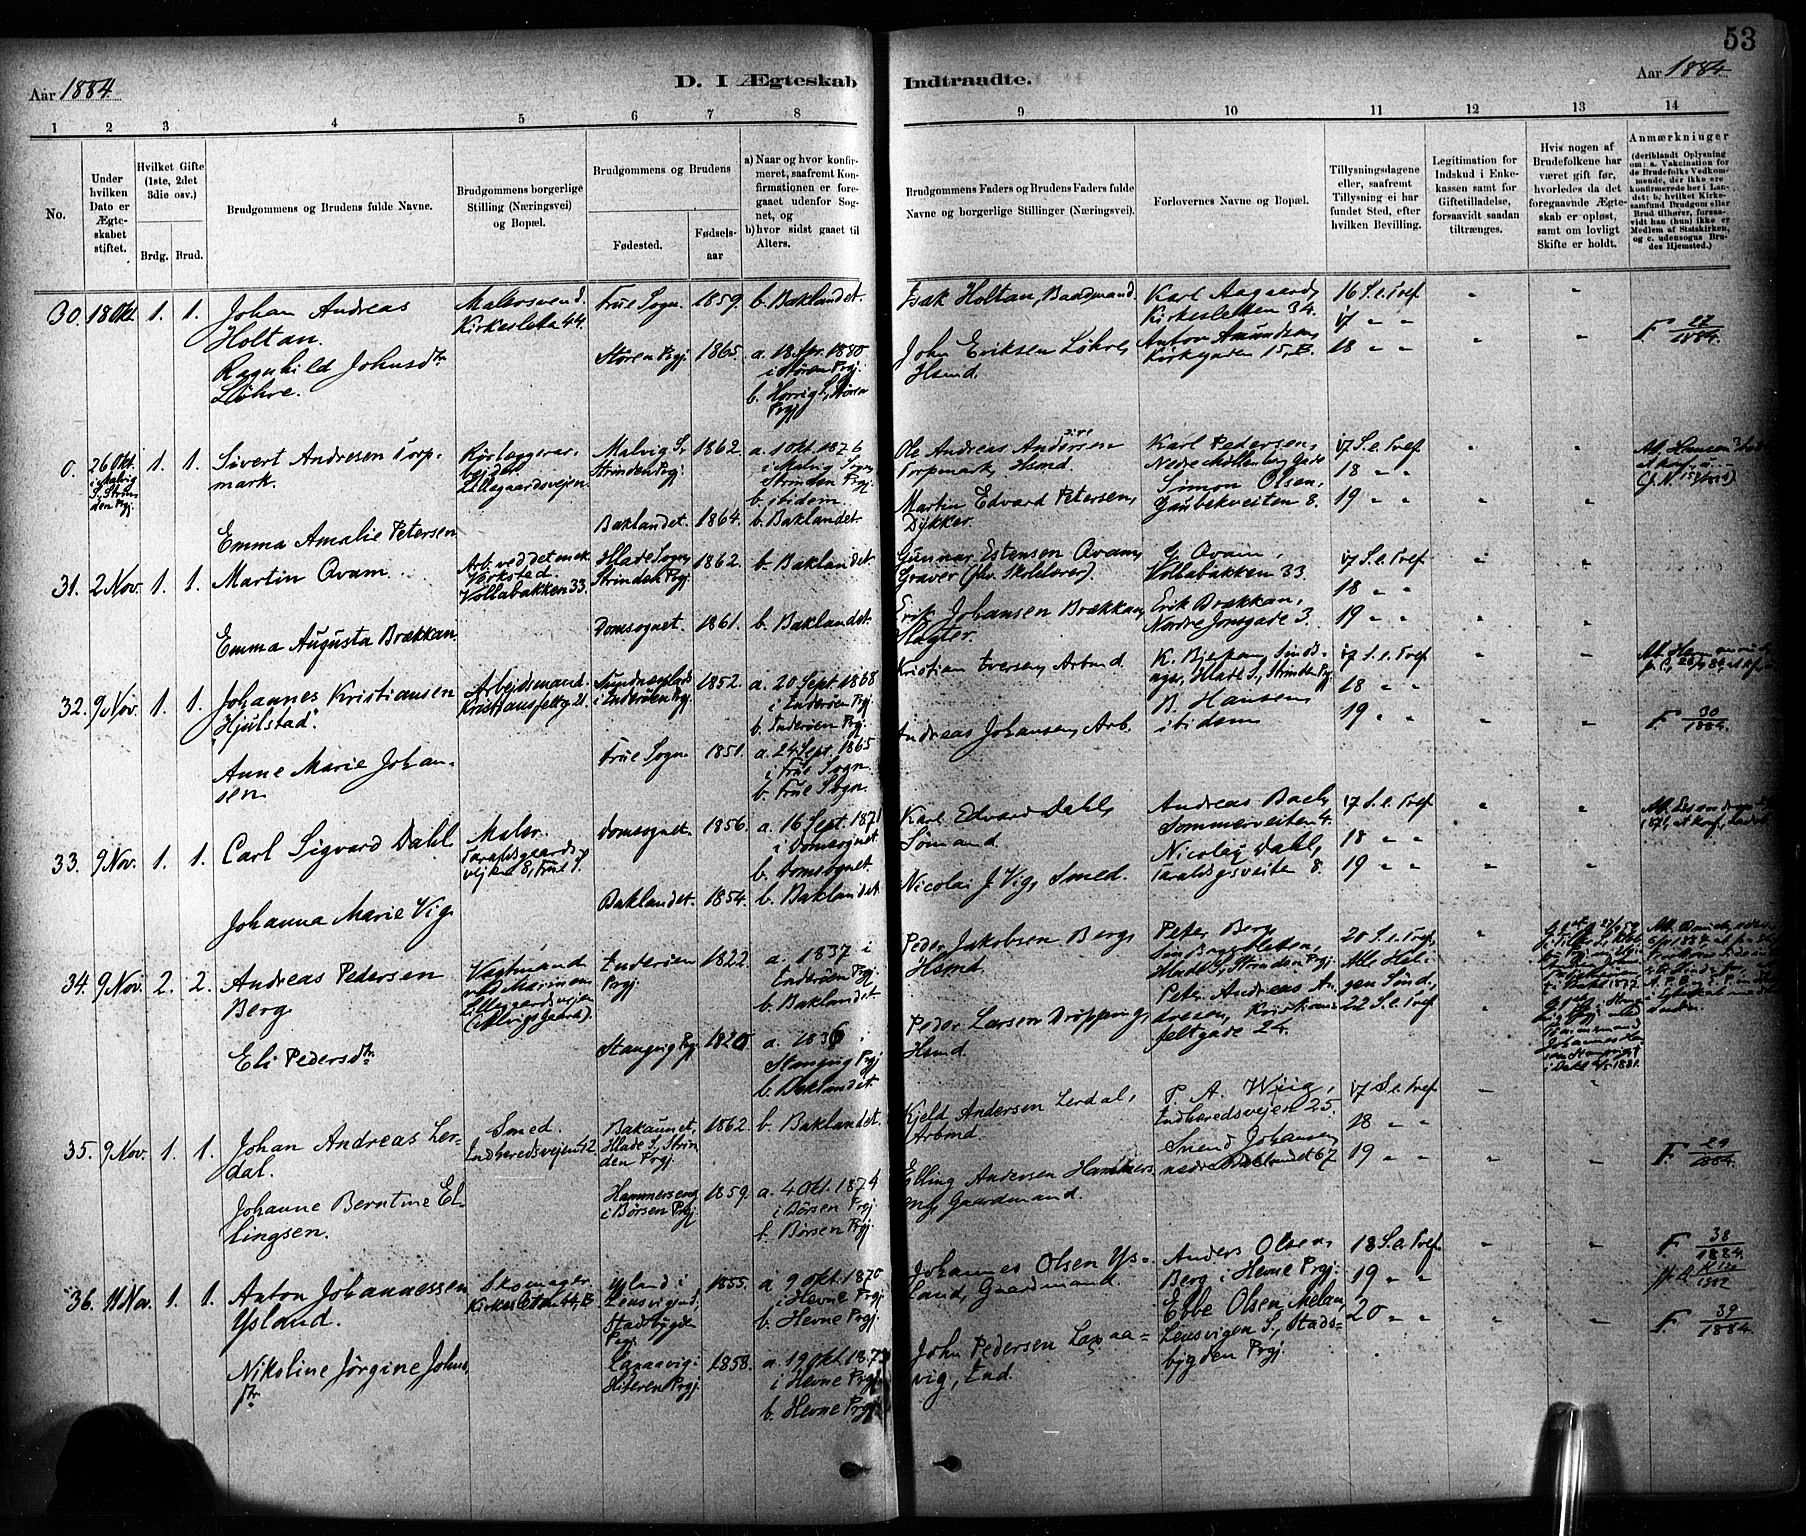 53
Aar 1884
D. I Ægteskab Indtraadte.
Aar 1884
1 2 3 4 5 6 7 8 9 10 11 12 13 14
No.
Under hvilken Dato er Ægteskabet stiftet.
Hvilket Gifte (1ste, 2det 3die osv.)
Brdg. Brud.
Brudgommens og Brudens fulde Navne.
Brudgommens borgerlige Stilling (Næringsvei) og Bopæl.
Brudgommens og Brudens
Fødested.
Fødsels-aar
a) Naar og hvor konfirmeret, saafremt Konfirmationen er foregaaet udenfor Sognet, og
b) hvor sidst gaaet til Alters.
Brudgommens Faders og Brudens Faders fulde Navne og borgerlige Stillinger (Næringsvei).
Forlovernes Navne og Bopæl.
Tillysningsdagene eller, saafremt Tillysning ei har fundet Sted, efter hvilken Bevilling.
Legitimation for Indskud i Enkekassen samt for Giftetilladelse, forsaavidt saadan tiltrænges.
Hvis nogen af Brudefolkene har været gift før, hvorledes da det foregaaende Ægteskab er opløst, samt om lovligt Skifte er holdt.
Anmærkninger
(deriblandt Oplysning om: a. Vakcination for de Brudefolks Vedkommende, der ikke ere konfirmerede her i Landet; b. hvilket Kirkesamfund Brudgom eller Brud tilhører, forsaavidt han (hun) ikke er Medlem af Statskirken, og c. udensogns Brudes Hjemsted.)
30. 18 Okt. 1. 1.
Johan Andreas
Holtan.
Malersvend.
Kirkesletta 44.
Frue Sogn. 1859. b. Baklandet.
Isak Holtan, Baadmand.
Karl Aagaard,
Kirkesletten 34.
Anton Amundsen,
Kirkegaden 15, B.
16 S. e. Tref.
17 " "
18 " "
Ragnhild Johnsdtr
Løhre.
Støren Prgj. 1865.
a. 18 Apr. 1880
i Støren Prgj.
b. Horrig S., Støren
Prgj.
John Eriksen Løhre,
Hsmd.
F. 27/1884.
0. 26 Okt.
i Malvig
S. Strinden Prgj.
1. 1.
Sivert Andresen Torpmark.
Rørlæggerarbejder
Lillegaardsvejen
Malvig S.
Strinden Prgj.
1862.
a. 1 Okt. 1876
i Malvig Sogn,
Strinden Prgj.
b. ibidem.
Ole Andreas Andersen
Torpmark, Hsmd.
Karl Pedersen,
Nedre Møllenberg Gade
Simon Olsen,
Gaubekveiten 8.
17 S. e. Tref.
18 " "
19 " "
Emma Amalie Petersen
Baklandet. 1864. b. Baklandet.
Martin Edvard Petersen,
Dykker.
31. 2 Nov. 1. 1.
Martin Qvam.
Arb. ved det mek.
Værksted.
Vollabakken 33.
Hlade Sogn,
Strinden Prgj.
1862. b. Baklandet.
Gunnar Estensen Qvam,
Graver (fhv. Skolelærer).
G. Qvam,
Vollabakken 33.
Erik Brækkan,
Nordre Jonsgade 3.
17 S. e. Tref.
18 " "
19 " "
Emma Augusta Brækkan
Domsognet. 1861. b. Baklandet.
Erik Johansen Brækkan,
Slagter.
32. 9 Nov. 1. 1.
Johannes Kristiansen
"Hjulstad".
Arbejdsmand.
Kristiansfeltg. 21.
i Inderøen Prgj.
1852.
a. 20 Sept. 1868
i Inderøen Prgj.
b. Inderøen Prgj.
Kristian Iversen, Arbmd.
Hlade S., Strinden Prgj.
B. Hansen,
ibidem
17 S. e. Tref.
18 " "
19 " "
Anne Marie Johansen
Frue Sogn. 1851.
a. 24 Sept. 1865
i Frue Sogn
b. Frue Sogn.
Andreas Johansen, Arb.
F. 30/1884.
33. 9 Nov. 1. 1.
Carl Sigvard Dahl
Maler.
Taraldsgaardsvejten 8, Frue S.
Domsognet. 1856.
a. 16 Sept. 1871
i Domsognet
b. Domsognet.
Karl Edvard Dahl,
Sømand.
Andreas Bach,
Sommerveiten 4.
Nicolay Dahl,
Taraldsgsveiten 8.
17 S. e. Tref.
18 " "
19 " "
Johanna Marie Vig.
Baklandet. 1854. b. Baklandet
Nicolai J. Vig, Smed.
34. 9 Nov. 2. 2.
Andreas Pedersen
Berg
Vagtmand
ved Marinen
Lillegaardsvejen
Inderøen
Prgj.
1822.
a. 1837 i
Inderøen Prgj.
b. Baklandet
Peder Jakobsen Berg,
Hsmd.
Peter Berg
Hlade S., Strinden Prgj.
Peter Andreas Andresen, Kristiansfeltgade 24.
20 S. e. Tref.
Alle Helgen Sønd.,
22 S. e. Tref
Eli Pedersdtr
Stangvig Prgj. 1820
a. 1836 i
Stangvig Prgj
b. Baklandet.
Peder Larsen Drøpping,
Hsmd.
35. 9 Nov. 1. 1.
Johan Andreas Lerdal.
Smed.
Indheredsvejen 42
Bakaunet.
Hlade S., Strinden Prgj.
1862. b. Baklandet.
Kjeld Andersen Lerdal,
Arbmd.
P. A. Wiig,
Indheredsvejen 25.
Svend Johansen
nedre Baklandet 67
17 S. e. Tref.
18 " "
19 " "
Johanne Berntine Ellingsen.
Hammerseng
i Børsen Prgj.
1859.
a. 4 Okt. 1874
i Børsen Prgj.
b. Børsen Prgj.
Elling Andersen Hammerseng, Gaardmand.
F. 29/1884.
36. 11 Nov. 1. 1.
Anton Johannessen
Ysland.
Skomager
Kirkesletta 44, B
Ysland i
Lensvigen S.,
Stadsbygden
Prgj.
1855.
a. 9 Okt. 1870
i Hevne Prgj.
b. Hevne Prgj.
Johannes Olsen Ysland, Gaardmand.
Anders Olsen,
Berg i Hevne Prgj.
Ebbe Olsen Melan,
Lensvigen S., Stadsbygden Prgj.
18 S. e. Tref.
19 " "
20 " "
F. 38/1884.
Nikoline Jørgine Johnsdtr
Laxaavig i
Hiteren Prgj.
1858.
a. 19 Okt. 1873
i Hevne Prgj.
b. Hevne Prgj.
John Pedersen Laxaavig, Ind.
F. 39/1884.